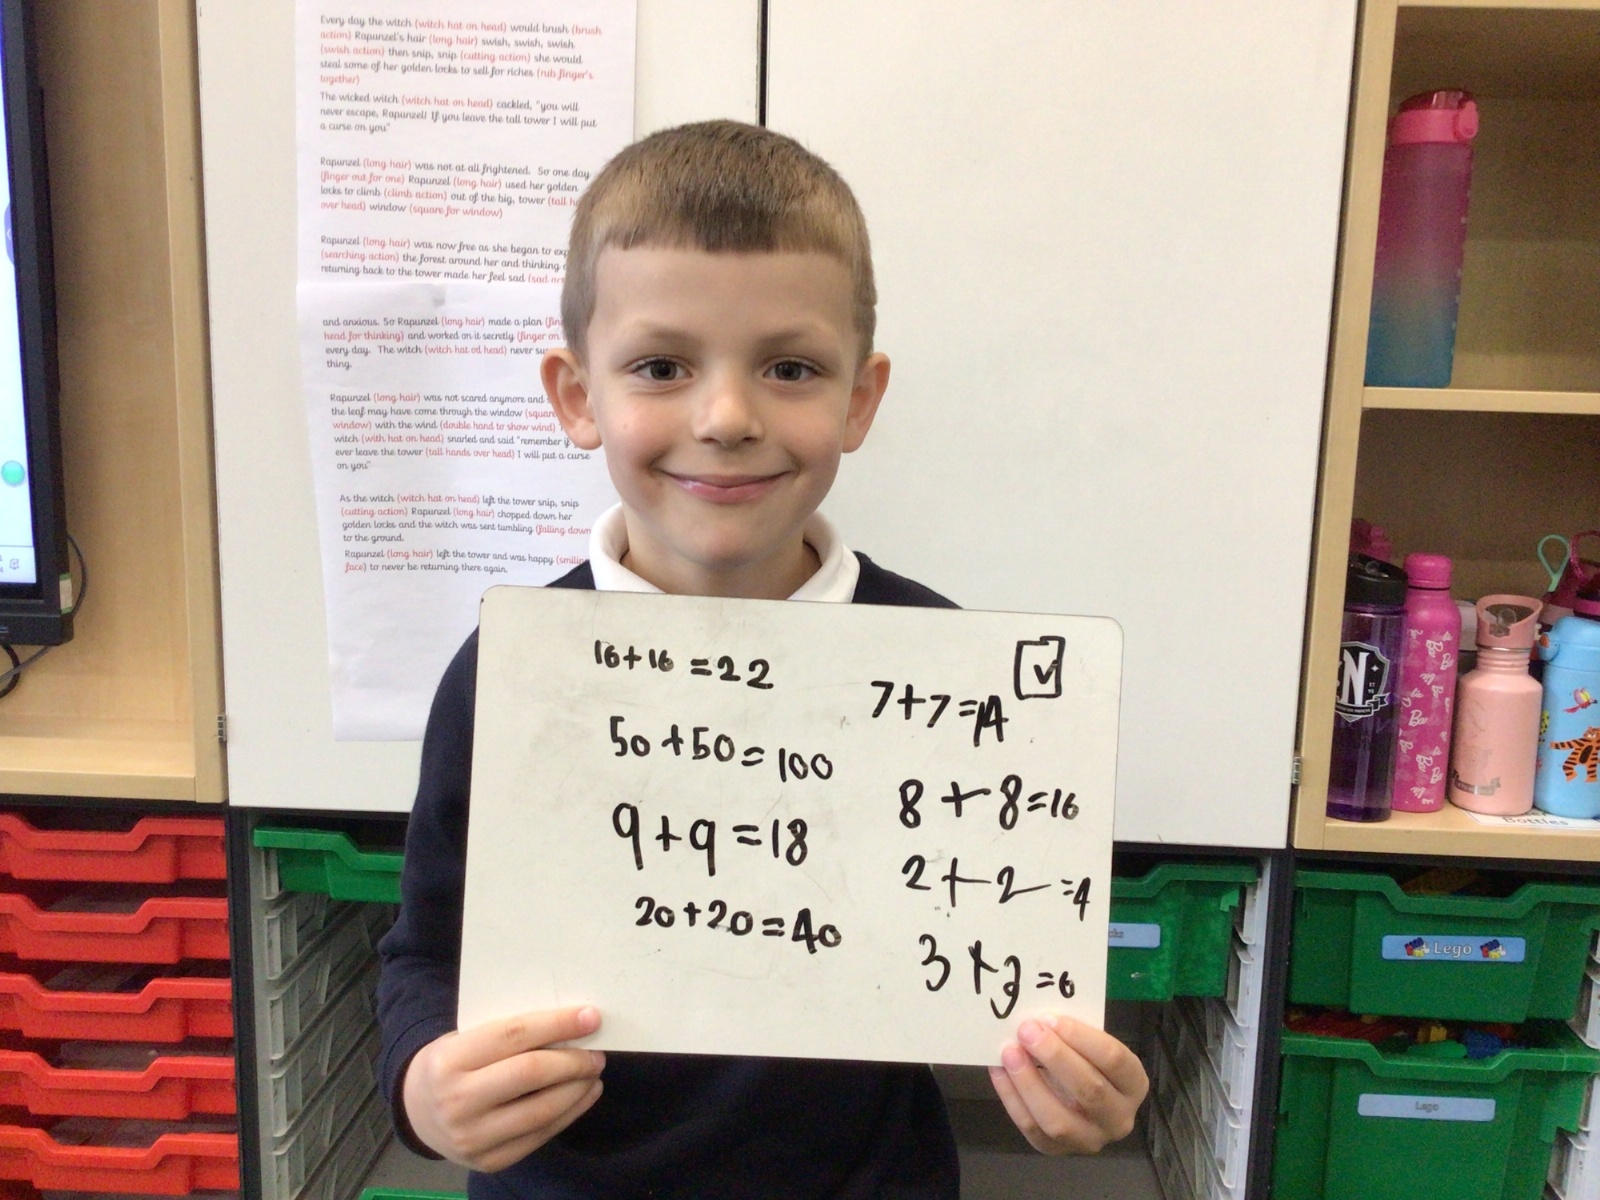 Every day the witch (witch hat on head) would brush (brush
action) Rapunzel's hair (long hair) swish, swish, swish
(swish action) then snip, snip (cutting action) she would
steal some of her golden locks to sell for riches (rub finger's
together)
The wicked witch (witch hat on head) cackled, "you will
never escape, Rapunzel! If you leave the tall tower I will put
a curse on you"
Rapunzel (long hair) was not at all frightened. So one day
(finger out for one) Rapunzel (long hair) used her golden
locks to climb (climb action) out of the big, tower (tall
over head) window (square for window)
Rapunzel (long hair) was now free as she began to
(searching action) the forest around her and thinking
returning back to the tower made her feel sad (sad
and anxious. So Rapunzel (long hair) made a plan
head for thinking) and worked on it secretly (finger on
every day. The witch (witch hat od head) never
thing.
Rapunzel (long hair) was not scared anymore and
the leaf may have come through the window (square
window) with the wind (double hand to show wind)
witch (with hat on head) snarled and said "remember if
ever leave the tower (tall hands over head) I will put a curse
on you"
As the witch (witch hat on head) left the tower snip, snip
(cutting action) Rapunzel (long hair) chopped down her
golden locks and the witch was sent tumbling (falling down
to the ground.
Rapunzel (long hair) left the tower and was happy (smiling
face) to never be returning there again.
16+16=22
50+50=100
9+9=18
20+20=40
7+7=14
8+8=16
2+2=4
3+3=6
Bottles
Lego
Lego